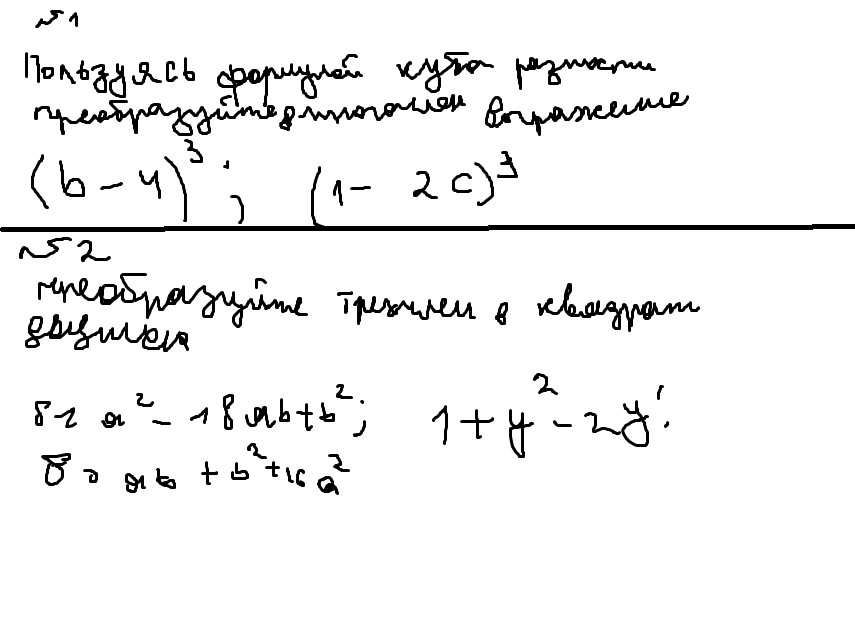 №1
Пользуясь формулой куба разности
преобразуйте в многочлен выражение
(b - 4)³; (1 - 2c)³
№2
преобразуйте трехчлен в квадрат
двучлена
81a² - 18ab + b²; 1 + y² - 2y;
8ab + b² + 16a²